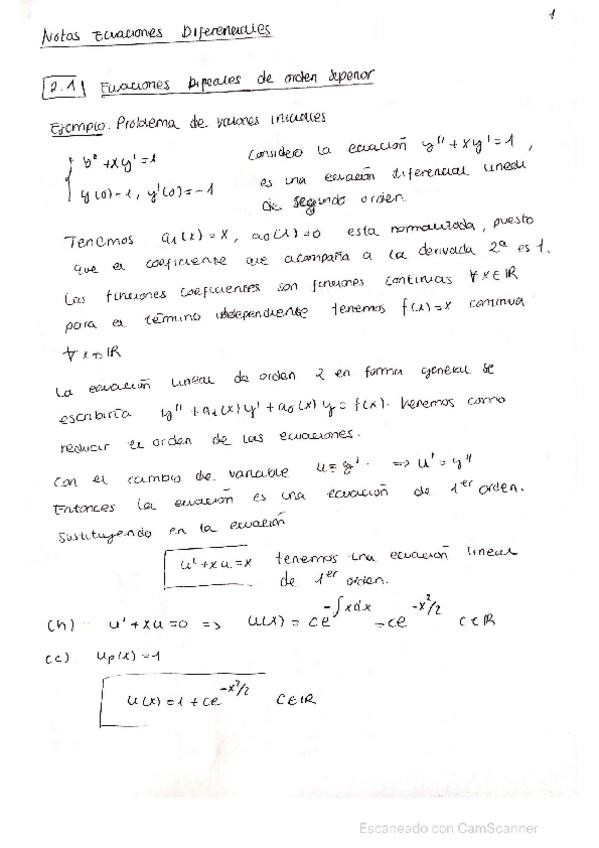 1
Notas Ecuaciones Diferenciales
2.1 Ecuaciones lineales de orden superior
Ejemplo. Problema de valores iniciales
y'' + xy' = 1 Considero la ecuación y'' + xy' = 1,
y(0)-1, y'(0)=-1 es una ecuación diferencial lineal
de segundo orden.
Tenemos a1(x)=x, a0(x)=0 esta normalizada, puesto
que el coeficiente que acompaña a la derivada 2ª es 1.
Las funciones coeficientes son funciones continuas ∀x∈ℝ
para el término independiente tenemos f(x)=x continua
∀ x ℝ
La ecuación lineal de orden 2 en forma general se
escribiría y'' + a1(x)y' + a0(x)y = f(x). Veremos como
reducir el orden de las ecuaciones.
Con el cambio de variable u=y'. => u'=y''
Entonces la ecuación es una ecuación de 1er orden.
Sustituyendo en la ecuación
u'+xu=x tenemos una ecuación lineal
de 1er orden.
(h) u'+xu=0 => u(x)=ce^{-∫xdx}=ce^{-x²/2} c∈ℝ
(c) up(x)=1
u(x)=1+ce^{-x²/2} C∈ℝ
Escaneado con CamScanner